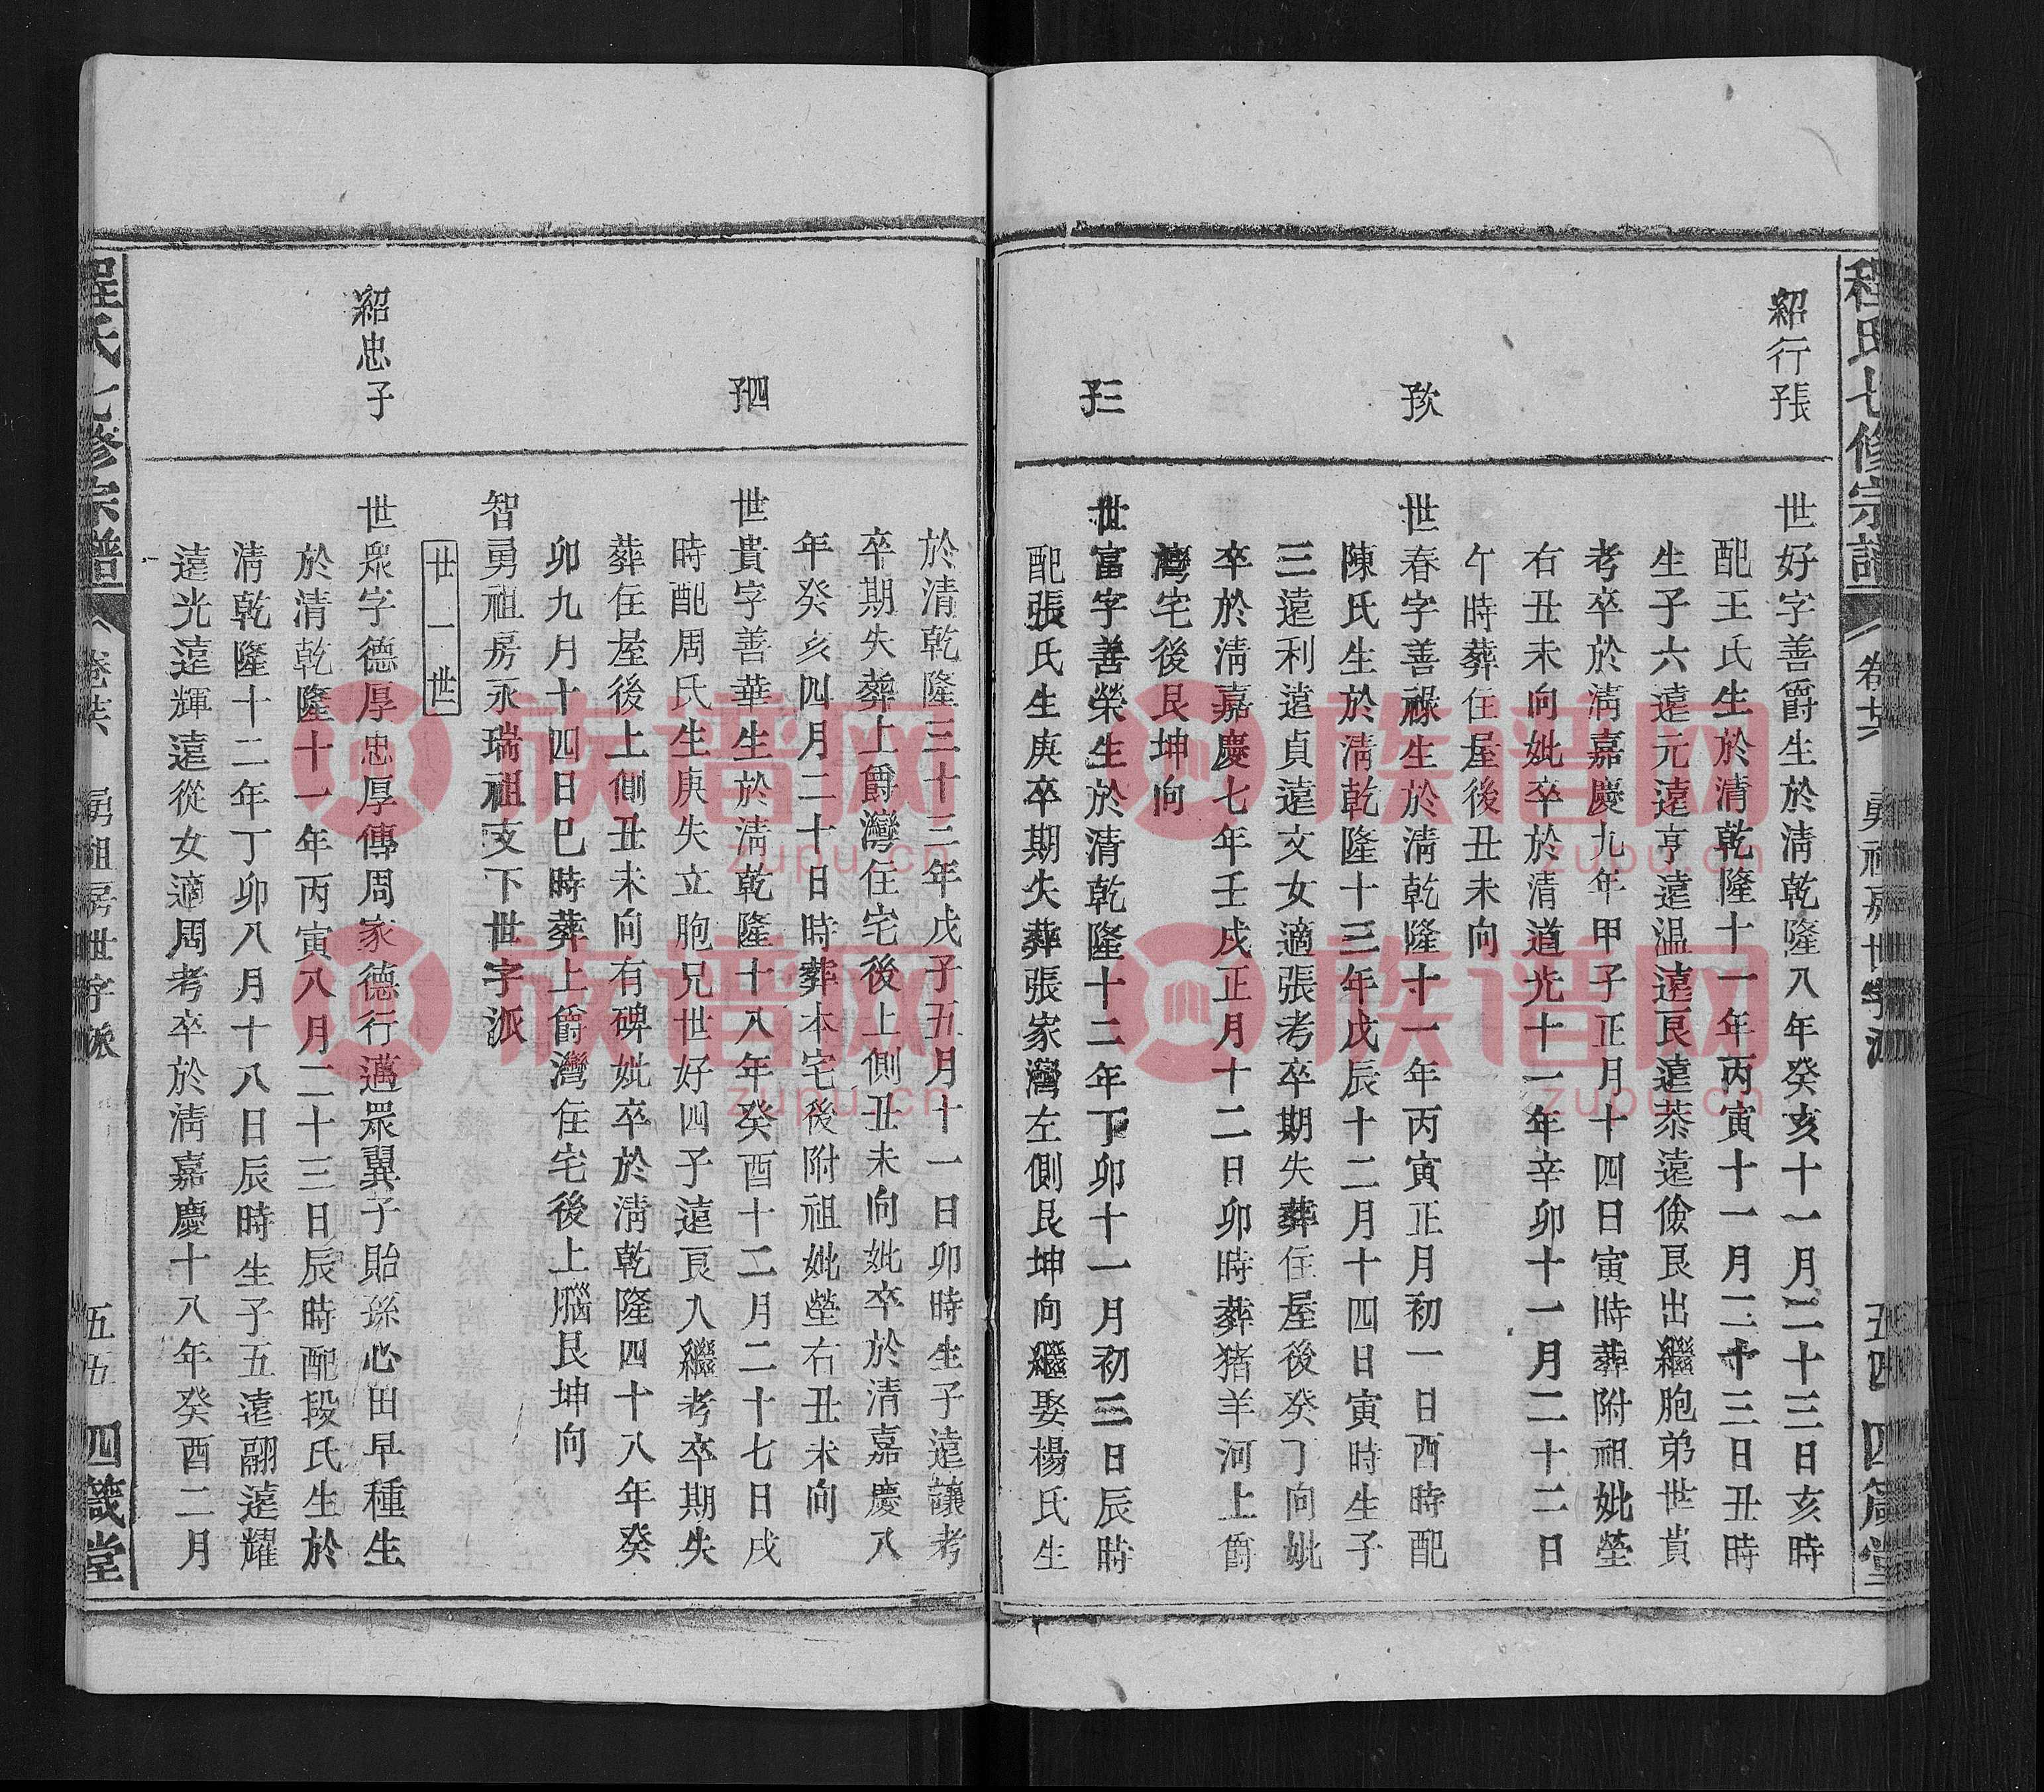 程氏七修宗譜 卷廿六 勇祖房世字派 五四 四箴堂
紹行長子
世好字善爵生於清乾隆八年癸亥十一月二十三日亥時
配王氏生於清乾隆十一年丙寅十一月二十三日丑時
生子六遠元遠亨遠温遠良遠恭遠儉艮出繼胞弟世貴
考卒於清嘉慶九年甲子正月十四日寅時葬附祖妣塋
右丑未向妣卒於清道光十一年辛卯十一月二十二日
午時葬住屋後丑未向
次子
世春字善祿生於清乾隆十一年丙寅正月初一日酉時配
陳氏生於清乾隆十三年戊辰十二月十四日寅時生子
三遠利遠貞遠文女適張考卒期失葬住屋後癸丁向妣
卒於清嘉慶七年壬戌正月十二日卯時葬猪羊河上爵
灣宅後艮坤向
三子
世富字善榮生於清乾隆十二年丁卯十一月初三日辰時
配張氏生庚卒期失葬張家灣左側艮坤向繼娶楊氏生
於清乾隆三十三年戊子五月十一日卯時生子遠讓考
卒期失葬上爵灣住宅後上側丑未向妣卒於清嘉慶八
年癸亥四月二十日時葬本宅後附祖妣塋右丑未向
四子
世貴字善華生於清乾隆十八年癸酉十二月二十七日戌
時配周氏生庚失立胞兄世好四子遠良入繼考卒期失
葬住屋後上側丑未向有碑妣卒於清乾隆四十八年癸
卯九月十四日巳時葬上爵灣住宅後上腦艮坤向
智勇祖房永瑞祖支下世字派
廿一世
紹忠子
世眾字德厚忠厚傳周家德行邁眾翼子貽孫心田早種生
於清乾隆十一年丙寅八月二十三日辰時配段氏生於
清乾隆十二年丁卯八月十八日辰時生子五遠翮遠耀
遠光遠輝遠從女適周考卒於清嘉慶十八年癸酉二月
程氏七修宗譜 卷廿六 勇祖房世字派 五五 四箴堂
族谱网
zupu.cn
族谱网
zupu.cn
族谱网
zupu.cn
族谱网
zupu.cn